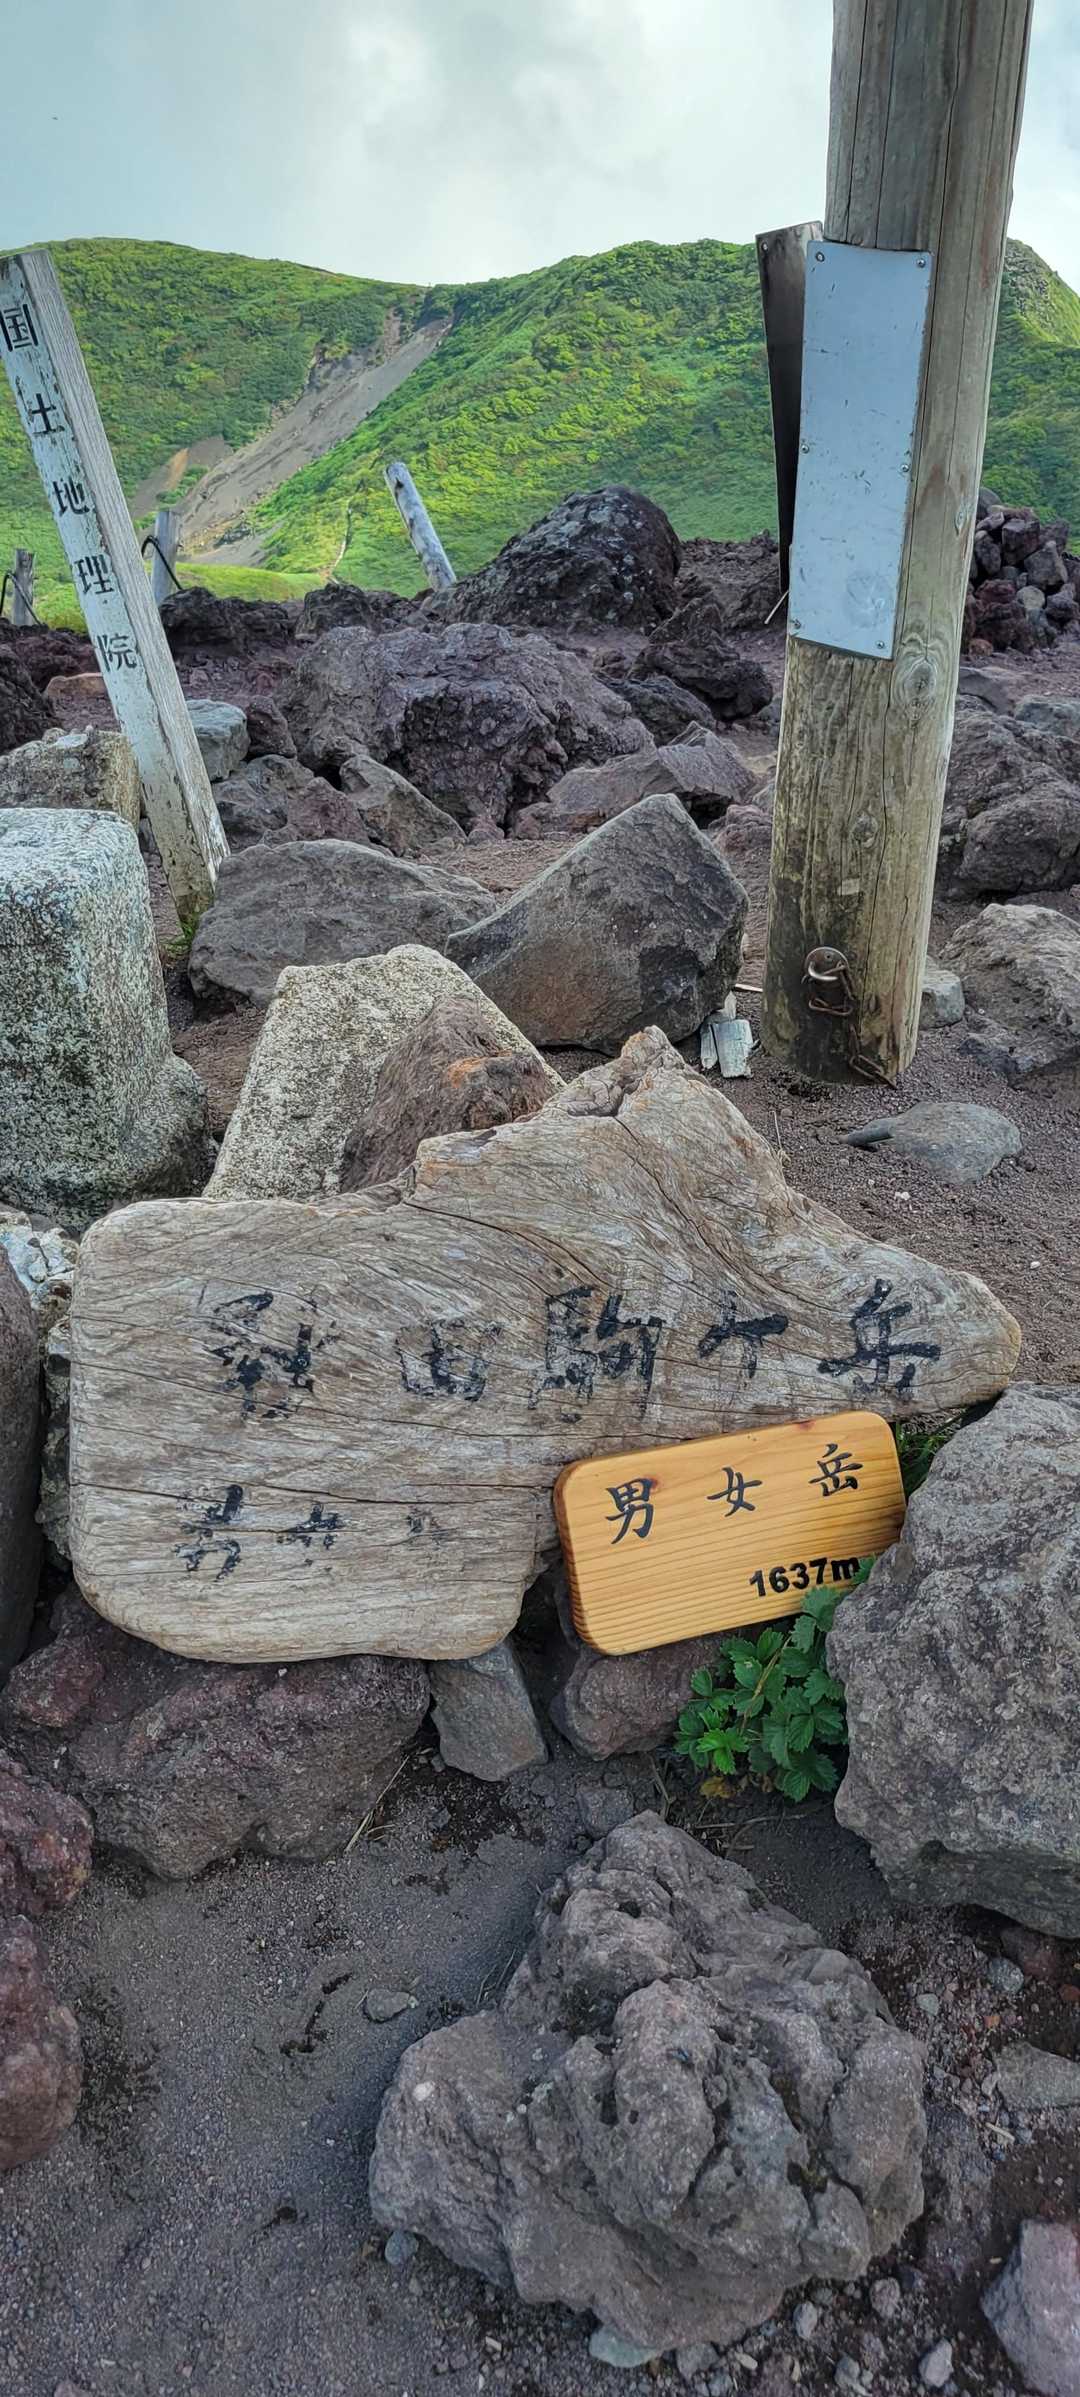 国土地理院
秋田駒ケ岳
男女岳
1637m